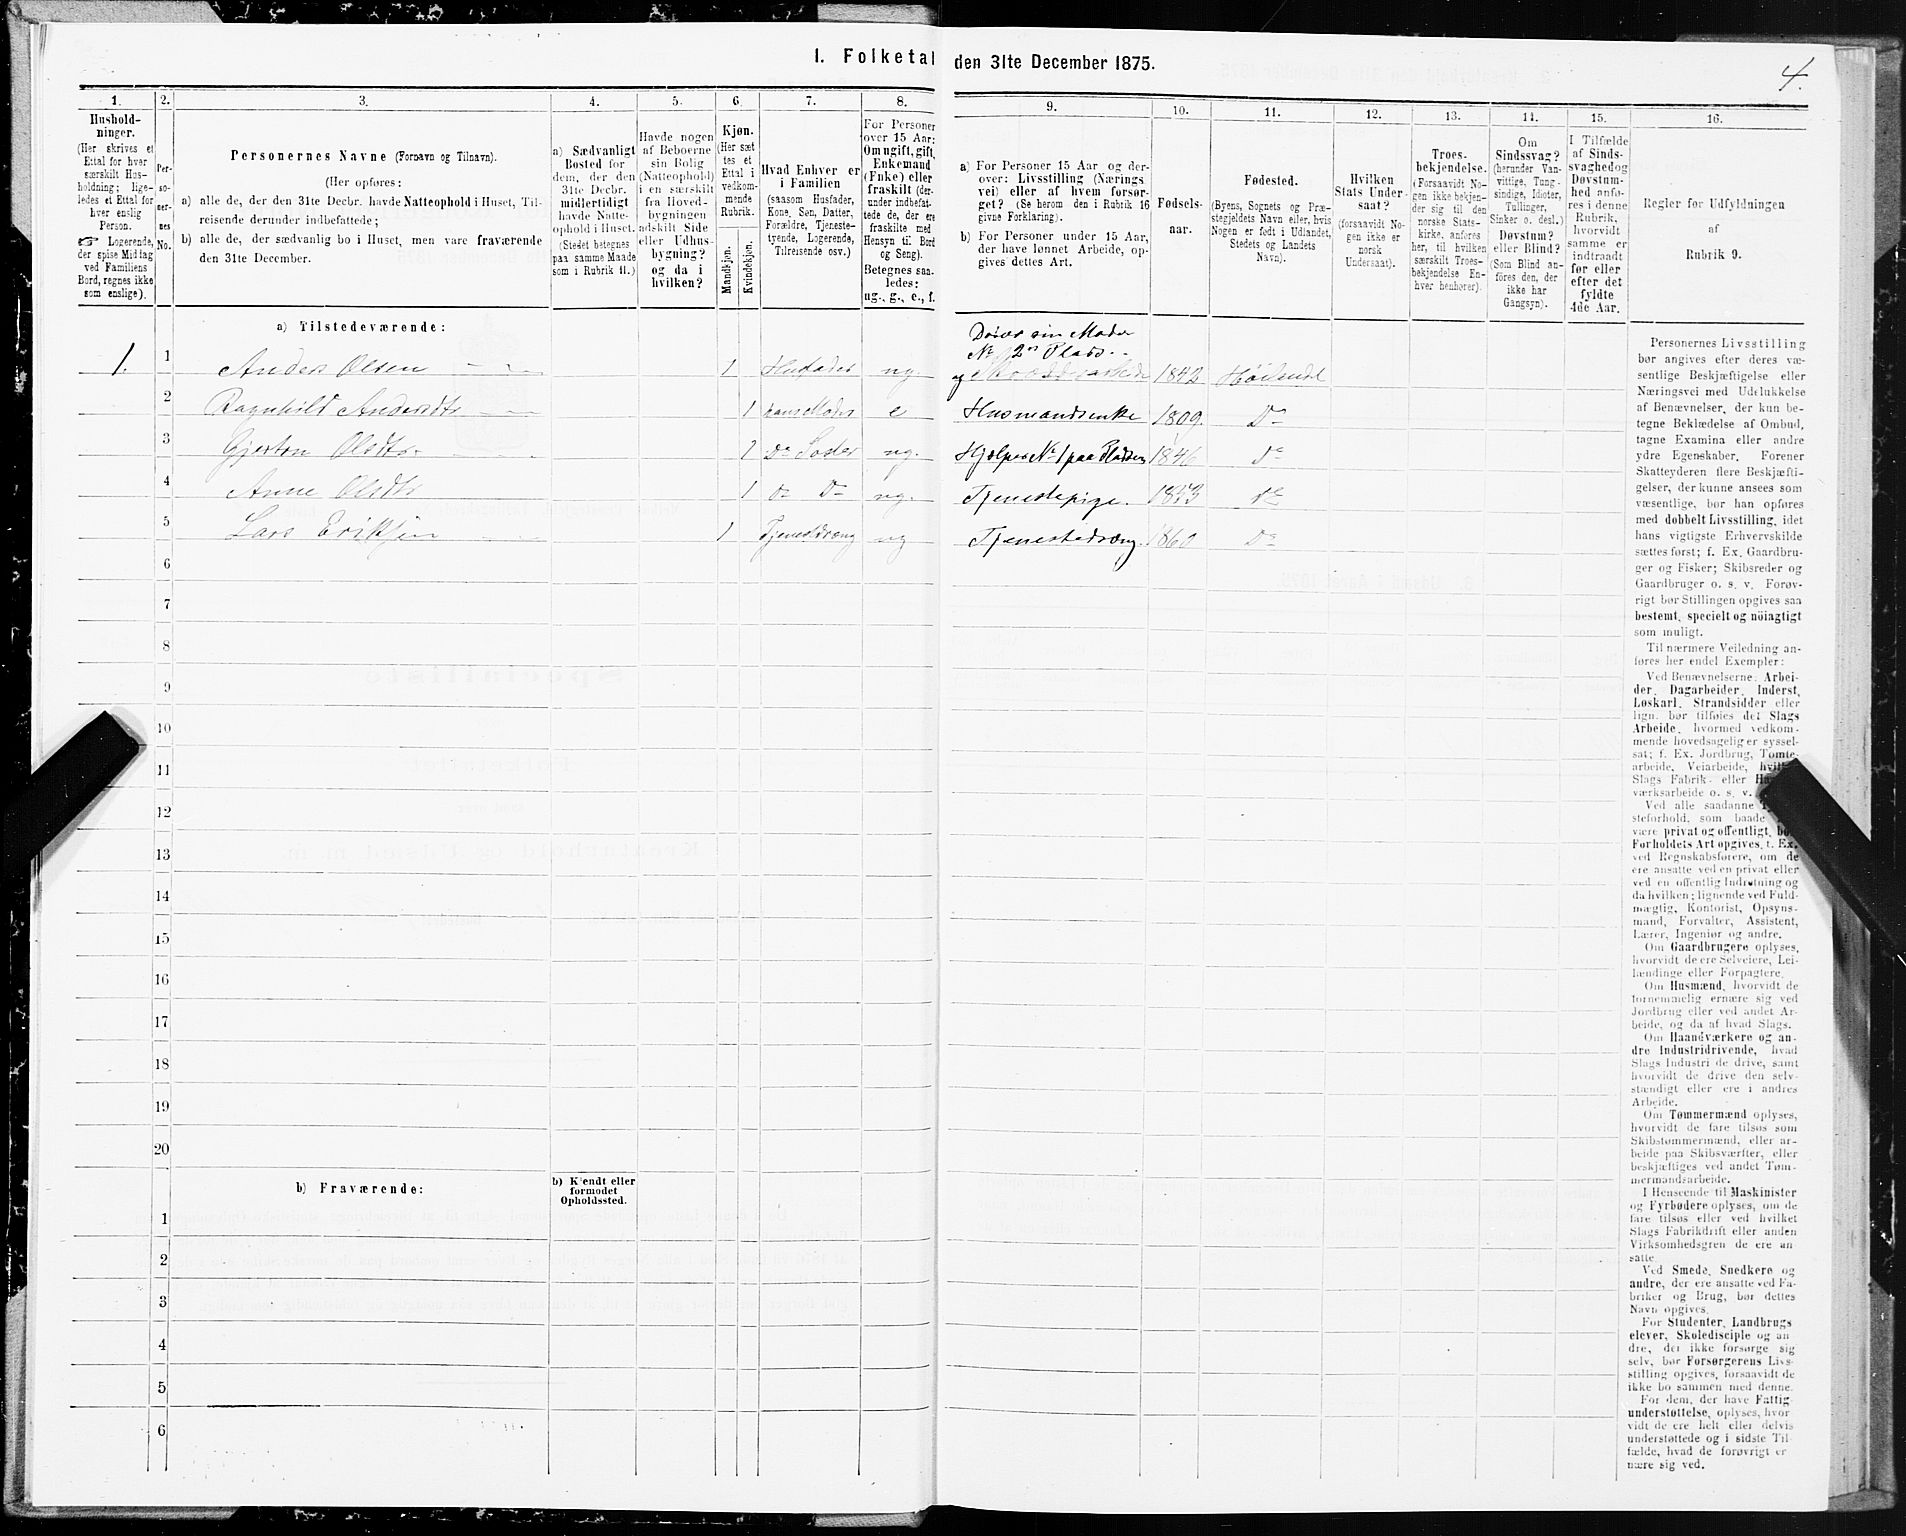 I. Folketal den 31te December 1875.
4.
1.
Hushold-
ninger.
(Her skrives et
Ettal for hver
særskilt Hus-
holdning; lige-
ledes et Ettal for
hver enslig
Person.
☞ Logerende,
der spise Middag
ved Familiens
Bord, regnes ikke
som enslige).
2.
Per-
so-
ner-
nes
No.
3.
Personernes Navne (Fornavn og Tilnavn).
(Her opføres:
a) alle de, der den 31te Decbr. havde Natteophold i Huset, Til-
reisende derunder indbefattede;
b) alle de, der sædvanlig bo i Huset, men vare fraværende
den 31te December.
4.
a) Sædvanligt
Bosted for
dem, der den
31te Decbr.
midlertidigt
havde Natte-
ophold i Huset.
(Stedet betegnes
paa samme Maade
som i Rubrik 11.)
5.
Havde nogen
af Beboerne
sin Bolig
(Natteophold)
i en særskilt
fra Hoved-
bygningen
adskilt Side
eller Udhus-
bygning?
og da i
hvilken?
6.
Kjøn.
(Her sæt
tes et
Ettal i
vedkom-
mende
Rubrik.
Mandkjøn.
Kvindekjøn.
7.
Hvad Enhver er
i Familien
(saasom Husfader,
Kone, Søn, Datter,
Forældre, Tjeneste-
tyende, Logerende,
Tilreisende osv.)
8.
For Personer
over 15 Aar:
Om ugift, gift,
Enkemand
(Enke) eller
fraskilt (der-
under indbefat-
tede de, der ere
fraskilte med
Hensyn til Bord
og Seng).
Betegnes saa-
ledes:
ug., g., e., f.
9.
a) For Personer 15 Aar og der-
over: Livsstilling (Nærings
vei) eller af hvem forsør-
get? (Se herom den i Rubrik 16
givne Forklaring).
b) For Personer under 15 Aar,
der have lønnet Arbeide, op-
gives dettes Art.
10.
Fødsels-
aar.
11.
Fødested.
(Byens, Sognets og Præ-
stegjeldets Navn eller, hvis
Nogen er født i Udlandet,
Stedets og Landets
Navn).
12.
Hvilken
Stats Under-
saat?
(forsaavidt No-
gen ikke er
norsk
Undersaat).
13.
Troes-
bekjendelse.
(Forsaavidt No-
gen ikke bekjen-
der sig til den
norske Stats-
kirke, anføres
her, til hvilken
særskilt Troes-
bekjendelse En-
hver henhører).
14.
Om
Sindssvag?
(herunder Van-
vittige, Tung-
sindige, Idioter,
Tullinger,
Sinker o. desl.)
Døvstum?
eller Blind?
(Som Blind an-
føres den, der
ikke har
Gangsyn).
15.
I Tilfælde
af Sinds-
svaghed og
Døvstum-
hed anfø-
res i denne
Rubrik,
hvorvidt
samme er
indtraadt
før eller
efter det
fyldte
4de Aar.
16.
Regler for Udfyldningen
af
Rubrik 9.
a) Tilstedeværende:
Driver sin Moder
No 2's Plads
1. 1 Anders Olsen 1 Husfader ug. og 1842
2 Ragnhild Andersdtr 1 hans Moder e Husmandsenke 1809. Do
3 Olsdtr 1 Do Søster ug. Hjælper No 1 paa Pladsen 1846 Do
4 Anne Olsdtr 1 Do Do ug. Tjenestepige. 1853 Do
5 Lars Eriksen 1 Tjenestdræng ug Tjenestedræng 1860 Do
6
7
8
9
10
11
12
13
14
15
16
17
18
19
20
b) Fraværende:
b) Kjendt eller
formodet
Opholdssted.
1
2
3
4
5
6
Personernes Livsstilling
bør angives efter deres væ-
sentlige Beskjæftigelse eller
Næringsvei med Udelukkelse
af Benævnelser, der kun be-
tegne Beklædelse af Ombud,
tagne Examina eller andre
ydre Egenskaber. Forener
Skatteyderen flere Beskjæfti-
gelser, der kunne ansees som
væsentlige, bør han opføres
med dobbelt Livsstilling, idet
hans vigtigste Erhvervskilde
sættes først; f. Ex. Gaardbru-
ger og Fisker; Skibsreder og
Gaardbruger o. s. v. Forøv-
rigt bør Stillingen opgives saa
bestemt, specielt og nöiagtigt
som muligt.
Til nærmere Veiledning an-
føres her endel Exempler:
Ved Benævnelserne: Arbei-
der, Dagarbeider, Inderst,
Løskarl, Strandsidder eller
lign. bør tilføies det Slags
Arbeide, hvormed vedkom-
mende hovedsagelig er syssel-
sat; f. Ex. Jordbrug, Tomte-
arbeide, Veiarbeide,
Slags Fabrik- eller
værksarbeide o. s. v.
Ved alle saadanne
steforhold, som baade
være privat og offentligt, bør
Forholdets Art opgives, f. Ex.
ved Regnskabsførere, om de
ere ansatte ved en privat eller
ved en offentlig Indretning og
da hvilken; lignende ved Fuld-
mægtig, Kontorist, Opsyns-
mand, Forvalter, Assistent,
Lærer, Ingeniør og andre.
Om Gaardbrugere oplyses,
hvorvidt de ere Selveiere, Lei-
lændinge eller Forpagtere.
Om Husmænd, hvorvidt de
fornemmelig ernære sig ved
Jordbrug eller ved andet Ar-
beide, og da af hvad Slags.
Om Haandværkere og an-
dre Industridrivende, hvad
Slags Industri de drive, samt
hvorvidt de drive den selv-
stændigt eller ere i andres
Arbeide.
Om Tømmermænd oplyses,
hvorvidt de fare tilsøs som
Skibstømmermænd, eller ar-
beide paa Skibsværfter, eller
beskjæftiges ved andet Tøm-
mermandsarbeide.
I Henseende til Maskinister
og Fyrbødere oplyses, om de
fare tilsøs eller ved hvilket
Slags Fabrikdrift eller anden
Virksomhedsgren de ere an-
satte.
Ved Smede, Snedkere og
andre, der ere ansatte ved Fa-
briker og Brug, bør dettes
Navn opgives.
For Studenter, Landbrugs
elever, Skoledisciple og an
dre, der ikke forsørge sig
selv, bør Forsørgerens Livs-
stilling opgives, forsaavidt de
ikke bo sammen med denne.
For dem, der have Fattig
understøttelse, oplyses, hvor
vidt de ere helt eller delvis
understøttede og i sidste Til-
fælde, hvad de forøvrigt er
nære sig ved.